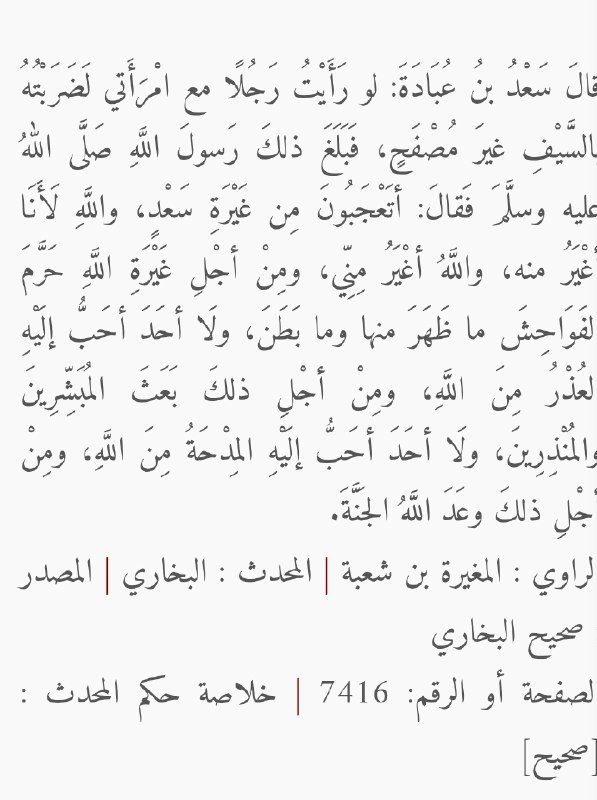 قالَ سَعْدُ بنُ عُبَادَةَ: لو رَأَيْتُ رَجُلًا مع امْرَأَتي لَضَرَبْتُهُ
بالسَّيْفِ غيرَ مُصْفَحٍ، فَبَلَغَ ذلكَ رَسولَ اللَّهِ صَلَّى اللهُ
عليه وسلَّمَ فَقالَ: أتَعْجَبُونَ مِن غَيْرَةِ سَعْدٍ، واللَّهِ لَأَنَا
أغْيَرُ منه، واللَّهُ أغْيَرُ مِنِّي، ومِنْ أجْلِ غَيْرَةِ اللَّهِ حَرَّمَ
الفَوَاحِشَ ما ظَهَرَ منها وما بَطَنَ، ولَا أحَدَ أحَبُّ إلَيْهِ
العُذْرُ مِنَ اللَّهِ، ومِنْ أجْلِ ذلكَ بَعَثَ المُبَشِّرِينَ
والمُنْذِرِينَ، ولَا أحَدَ أحَبُّ إلَيْهِ المِدْحَةُ مِنَ اللَّهِ، ومِنْ
أجْلِ ذلكَ وعَدَ اللَّهُ الجَنَّةَ.
الراوي : المغيرة بن شعبة | المحدث : البخاري | المصدر
: صحيح البخاري
الصفحة أو الرقم: 7416 | خلاصة حكم المحدث :
[صحيح]